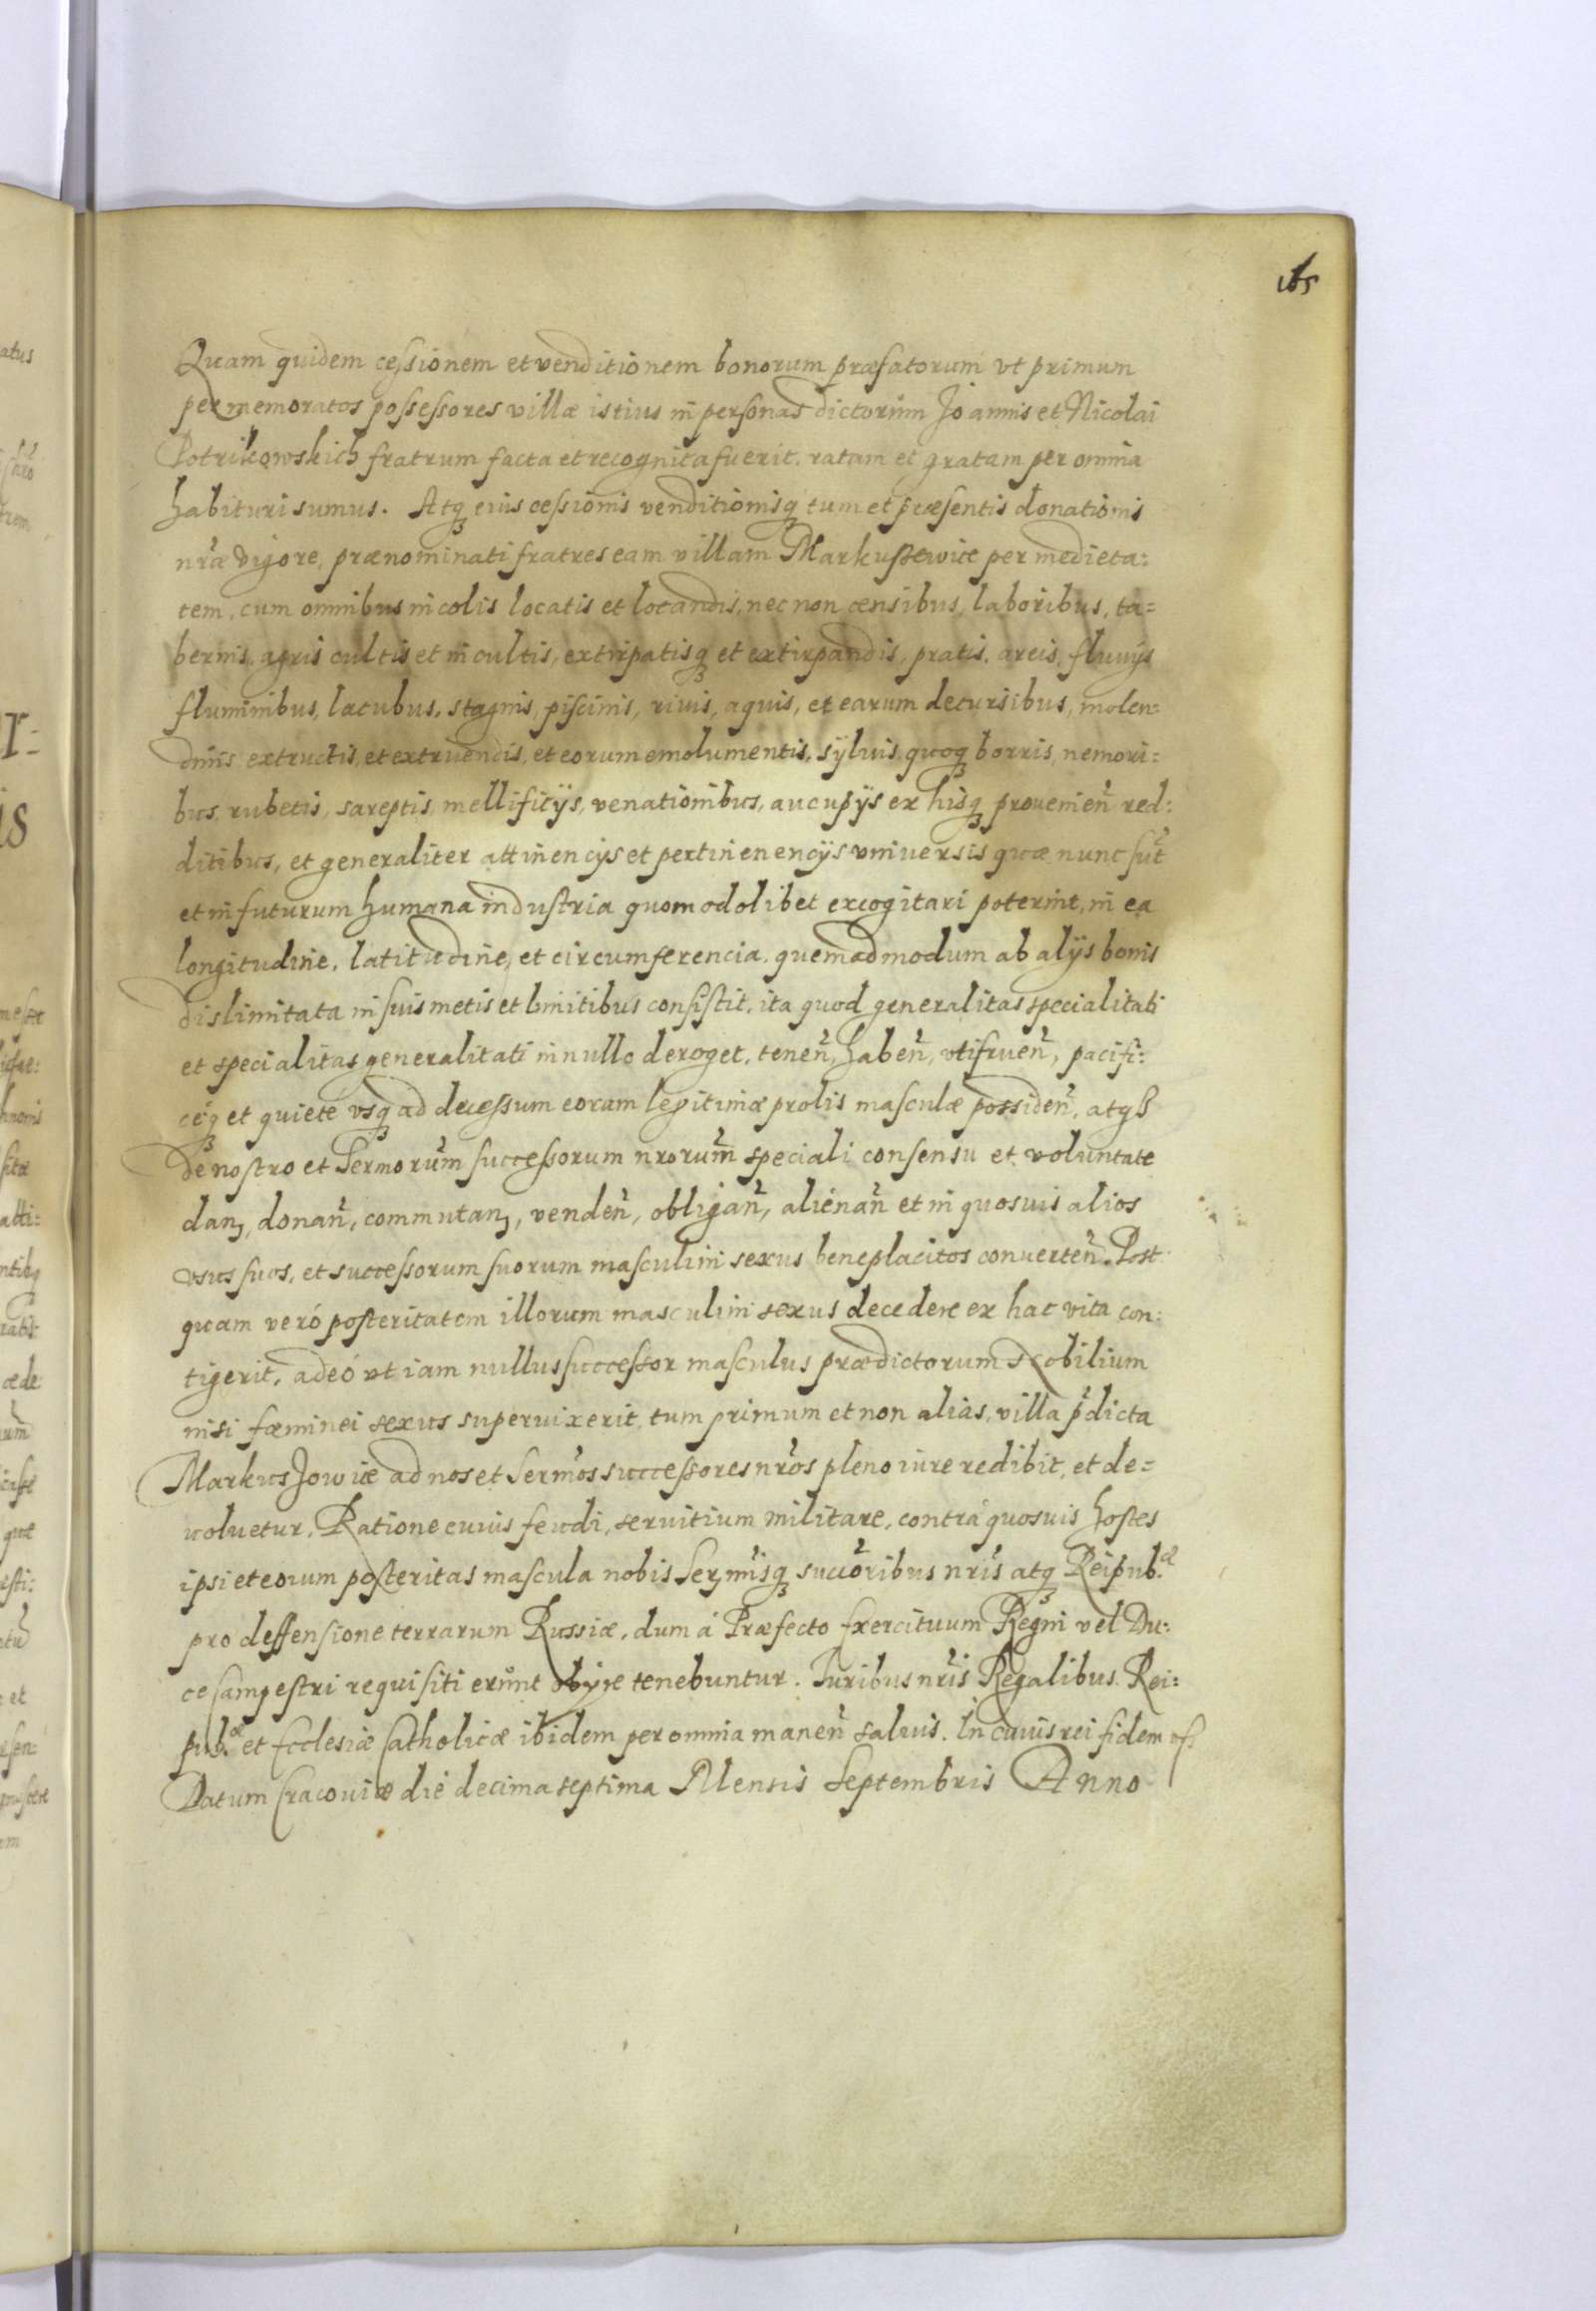 165
Quam quidem cessionem et venditionem bonorum præfatorum vt primum
per memoratos possessores villæ istius in personas dictorum Joannis et Nicolai
Potrikowskich fratrum facta et recognita fuerit, ratam et gratam per omnia
habituri sumus. Atq₃ eius cessionis venditionisq₃ tum et præsentis donationis
nr̃æ vigore, prænominati fratres eam villam Markussewice per medieta:
tem, cum omnibus incolis locatis et locandis, nec non censibus, laboribus, ta=
bernis, agris cultis et incultis, extirpatisq₃ et extirpandis, pratis, areis, fluuijs
fluminibus, lacubus, stagnis, piscinis, riuis, aquis, et earum decursibus, molen:
dinis extructis, et extruendis, et eorum emolumentis, syluis, quoq₃ borris, nemori:
bus, rubetis, sareptis, mellificijs, venationibus, aucupijs ex hisq₃ prouenien̄ red:
ditibus, et generaliter attinencijs et pertinenencijs vniuersis quæ nunc sūt
et in futurum humana industria quomodolibet excogitari poterint, in ea
longitudine, latitudine, et circumferencia, quemadmodum ab alijs bonis
dislimitata in suis metis et limitibus consistit, ita quod generalitas specialitati
et specialitas generalitati in nullo deroget, tenen̄, haben̄, vtifruen̄, pacifi:
ceq₃ et quiete vsq₃ ad decessum eorum legitimæ prolis masculæ possiden̄, atq₃
de nostro et Sermorum̃ successorum nrorum̃ speciali consensu et voluntate
dan₃, donan̄, commutan₃, venden̄, obligan̄, alienan̄ et in quosuis alios
vsus suos, et successorum suorum masculini sexus beneplacitos conuerten̄. Post
quam veró posteritatem illorum masculini sexus decedere ex hac vita con:
tigerit, adeó vt iam nullus successor masculus prædictorum Nobilium
nisi fœminei sexus superuixerit, tum primum et non alias, villa p̃dicta
Markussowice ad nos et Serm̃os successores nr̃os pleno iure redibit, et de=
uoluetur. Ratione cuius feudi, seruitium militare, contrá quosuis hostes
ipsi et eorum posteritas mascula nobis Serm̃isq₃ succõribus nr̃is atq₃ Reipub.æ
pro deffensione terrarum Russiæ, dum á Præfecto Exercituum Regni vel Du:
ce Campestri requisiti erunt obire tenebuntur. Iuribus nr̃is Regalibus Rei:
pub.æ et Ecclesiæ Catholicæ ibidem per omnia manen̄ saluis. In cuius rei fidem etc.
Datum Cracouiæ die decima septima Mensis Septembris Anno